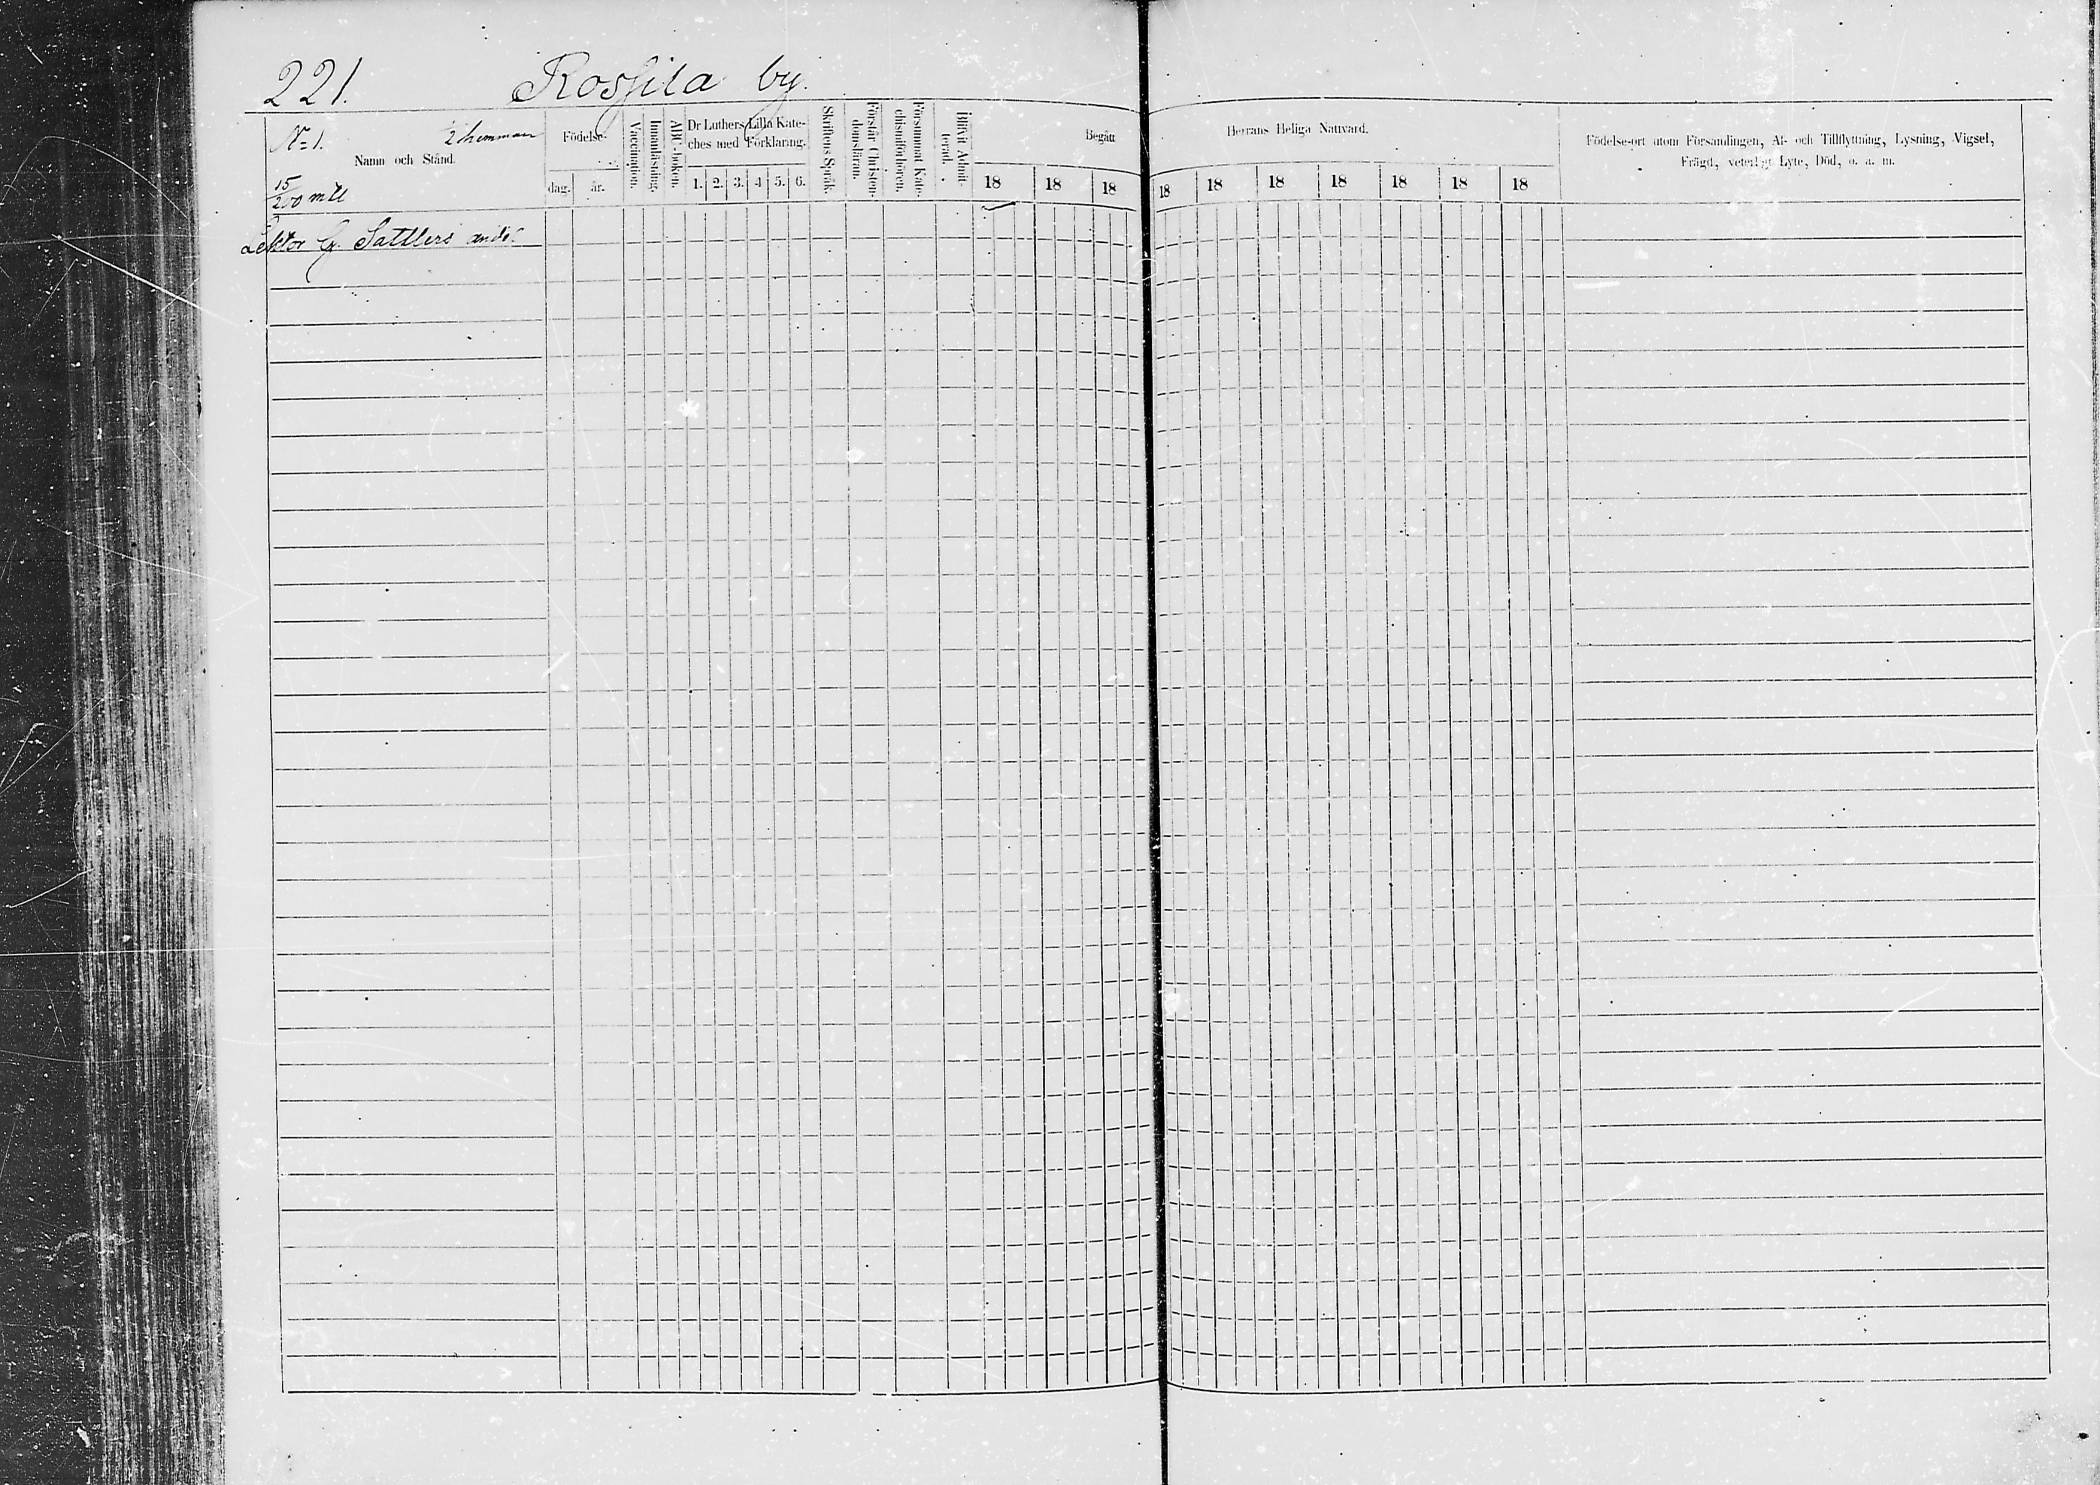 221. Rossila by.
No 1. 2 hemman
Namn och Stånd.
15/200 mtl
Lektor G. Sattlers andel
Födelse-
dag. år.
Vaccination.
Innanläsning.
ABC-boken.
Dr Luthers Lilla Kate-
ches med Förklaring.
1. 2. 3. 4 5. 6.
Skriftens Språk.
Förstår Christen-
domsläran.
Försummat Kate-
chismiförhören.
Blifvit Admit-
terad.
Begått Herrans Heliga Nattvard.
18 18 18 18 18 18 18 18 18 18
Födelse-ort utom Församlingen, Af- och Tillflyttning, Lysning, Vigsel,
Frägd, veterligt Lyte, Död, o. a. m.